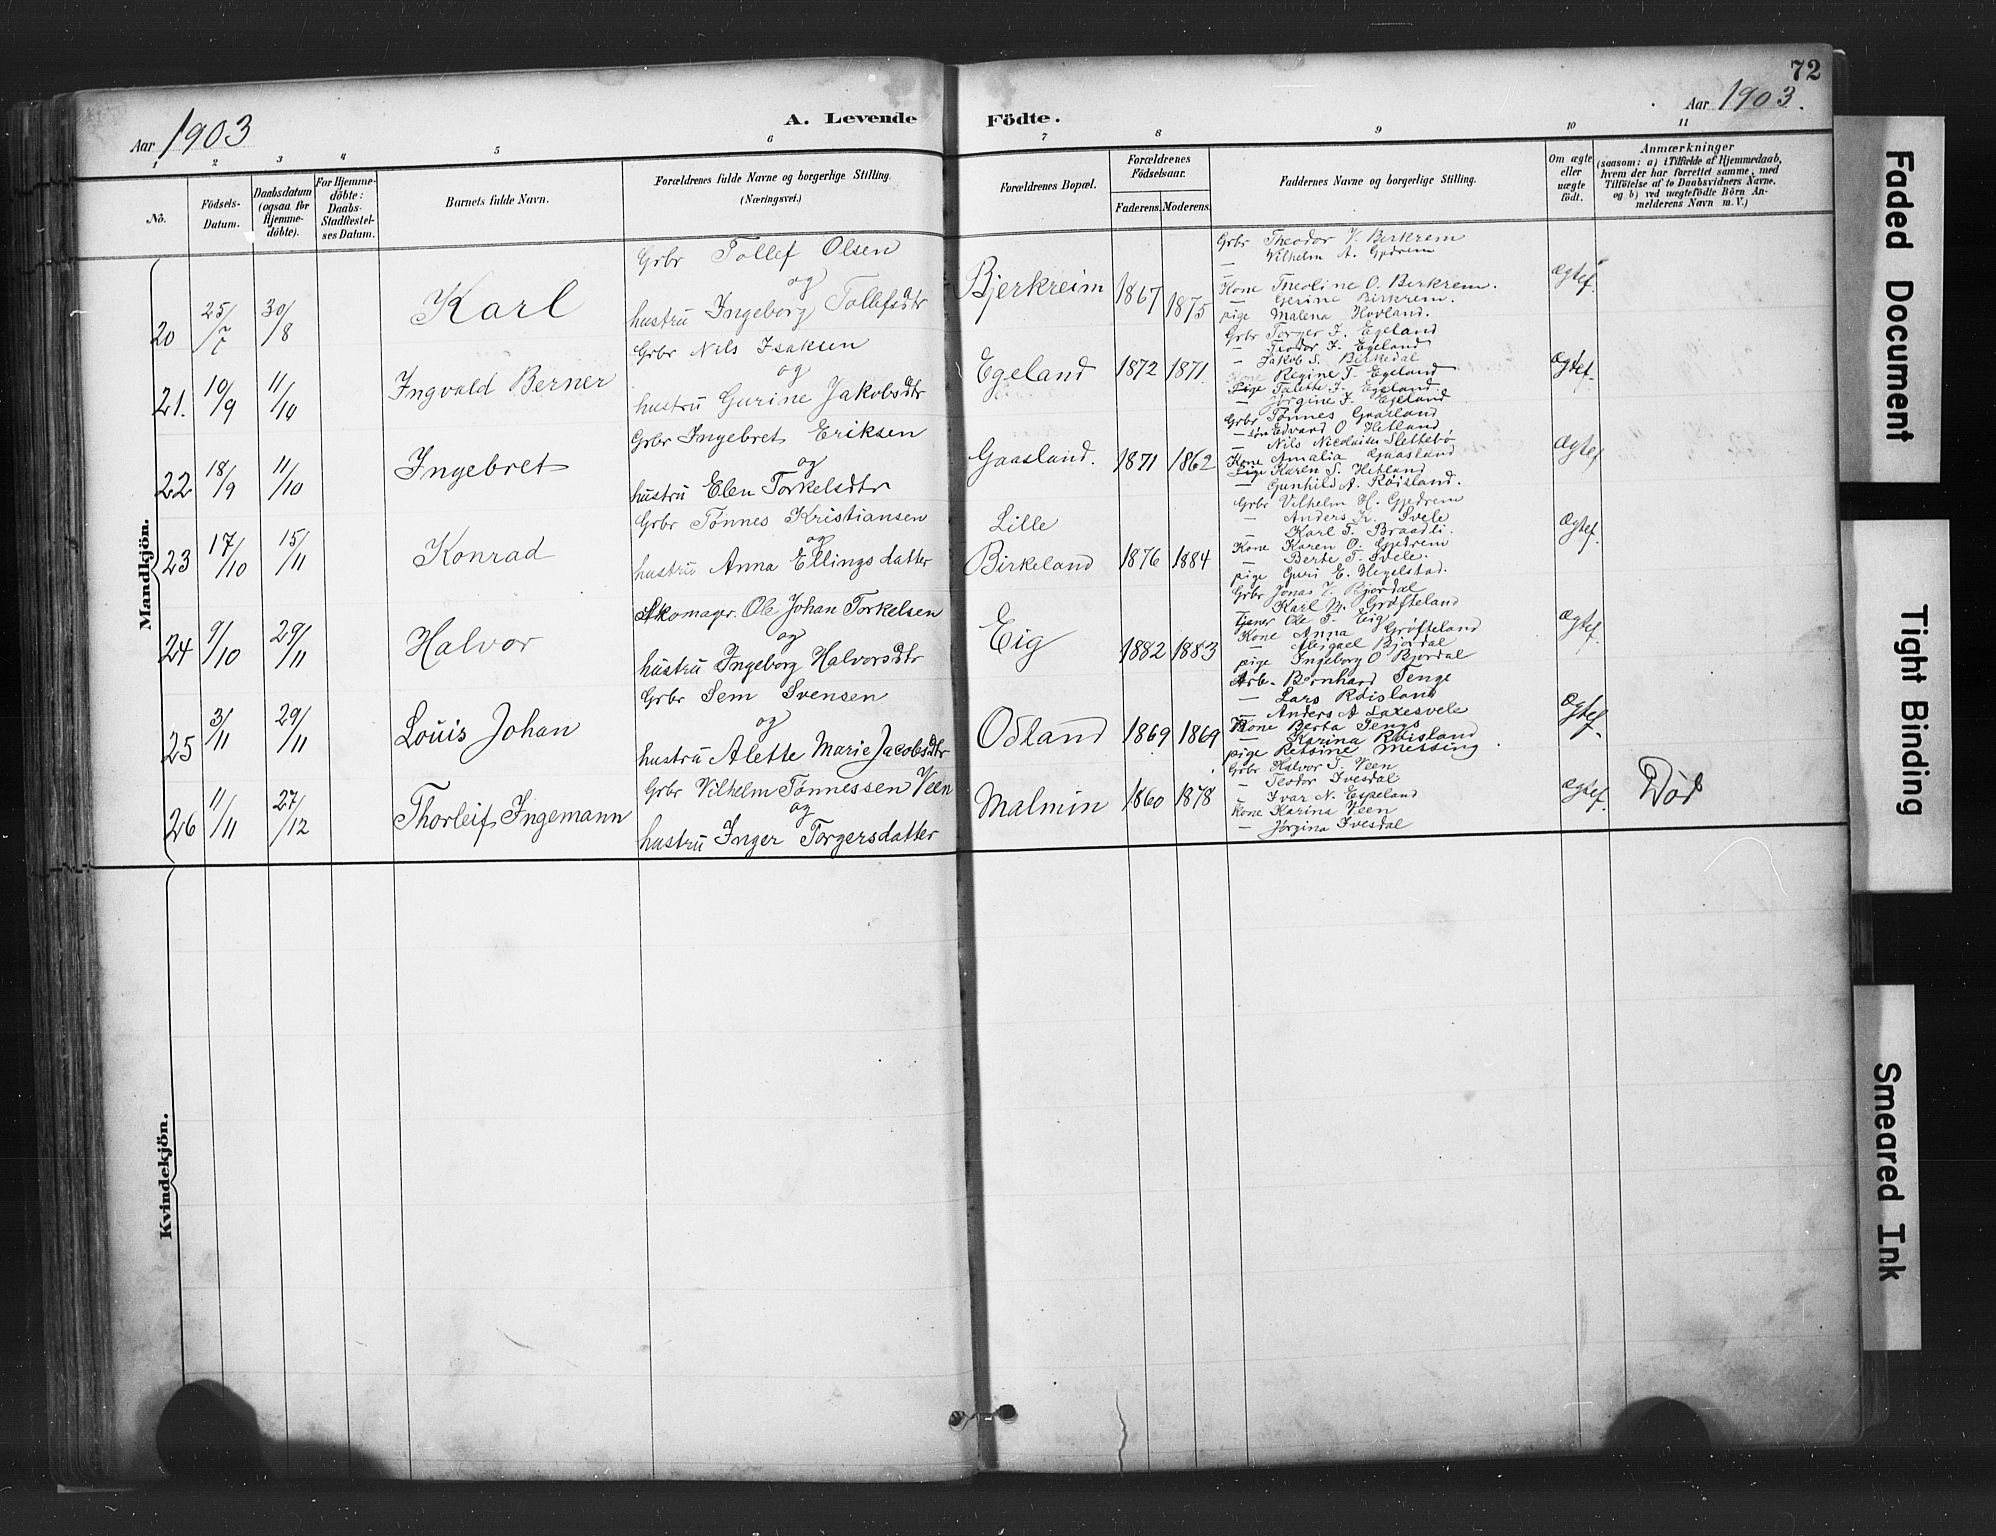 72
Aar 1903
A. Levende Födte.
Aar 1903.
1 2 3 4 5 6 7 8 9 10 11
Nô.
Födsels-Datum.
Daabsdatum (ogsaa for Hjemmedöbte).
For Hjemmedöbte: Daabs-Stadfæstelses Datum.
Barnets fulde Navn.
Forældrenes fulde Navne og borgerlige Stilling.
(Næringsvei.)
Forældrenes Bopæl.
Forældrenes Födselsaar.
Faderens. Moderens.
Faddernes Navne og borgerlige Stilling.
Om ægte eller uægte födt.
Anmærkninger
(saasom: a) i Tilfælde af Hjemmedaab, hvem der har forrettet samme, med Tilföielse af to Daabsvidners Navne, og b) ved uægtefödte Börn Anmelderens Navn m. V.)
Mandkjön.
20 25/7 30/8 Karl
Grbr Tollef Olsen
og
hustru Ingeborg Tollefsdtr
Bjerkreim 1867 1875
Grbr Theodor V. Birkrem
— Vilhelm A. Gjedrem
Kone Theoline O. Birkrem.
— Gerine Birkrem.
pige Malena Hovland.
Ægtef.
21. 10/9 11/10 Ingvald Berner
Grbr Nils Isaksen
og
hustru Gurine Jakobsdtr
Egeland 1872 1871.
Grbr Torger I. Egeland
— Teodor I. Egeland
— Jakob S. Birkedal
Kone Regine T. Egeland
Pige Talette I. Egeland.
— Jørgine I. Egeland
Ægtef.
22 18/9 11/10 Ingebret
Grbr Ingebret Eriksen
og
hustru Elen Torkelsdtr
Gaasland. 1871 1862
Grbr Tønnes Gaasland
— søn Edvard O Hetland
— Nils Nicolaisen Slettebø
Kone Amalia Gaasland
Pige Karen S. Hetland
— Gunhild A. Røisland.
Ægtef
23 17/10 15/11 Konrad
Grbr Tønnes Kristiansen
og
hustru Anna Ellingsdatter
Lille
Birkeland 1876 1884
Grbr Vilhelm H. Gjedrem
— Anders K. Svele
— Karl T. Braadli.
Kone Karen O. Gjedrem
— Berte T. Svele.
pige Guri E. Hegelstad.
Ægtef.
24 9/10 29/11 Halvor
Skomager. Ole Johan Torkelsen
og
hustru Ingeborg Halvorsdtr
Eig 1882 1883
Grbr Jonas V. Bjordal
— Karl M. Grøfteland
Tjener Ole T. Eig
Kone Anna Grøfteland
— Abigael Bjordal
pige Ingeborg O Bjordal
Ægtef.
25 3/11 29/11 Louis Johan
Grbr Sem Svensen
og
hustru Alette Marie Jacobsdtr
Odland 1869 1869
Arb. Bernhard Tengs
— Lars Røisland
— Anders A Laxesvele
Kone Berta Tengs
— Karina Røisland
pige Retsine Messing
Ægtef.
26 11/11 27/12 Thorleif Ingemann
Grbr Vilhelm Tønnessen Veen
og
hustru Inger Torgersdatter
Malmin 1860 1878
Grbr Halvor T. Veen
— Teodor Ivesdal
— Ivar N. Espeland
Kone Karina Veen
— Jørgina Ivesdal
Ægtef. Død
Kvindekjön.
Faded Document
Tight Binding
Smeared Ink